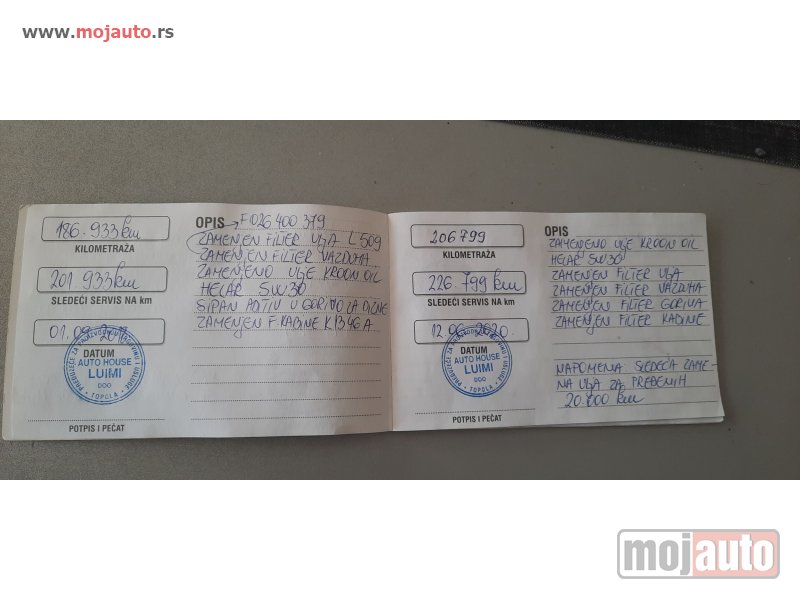 www.mojauto.rs
186.933 km
KILOMETRAŽA
201.933 km
SLEDEĆI SERVIS NA km
01.09.
DATUM
AUTO HOUSE
LUIMI
DOO
TOPOLA
POTPIS I PEČAT
OPIS → F1026400379
ZAMENJEN FILTER ULJA L509
ZAMENJEN FILTER VAZDUHA
ZAMENJENO ULJE KROON OIL
HELAR 5W30
SIPAN ADTIV U GORIVO ZA DIZNE
ZAMENJEN F. KABINE K1346A
206799
KILOMETRAŽA
226.799 km
SLEDEĆI SERVIS NA km
12.06.2020.
DATUM
AUTO HOUSE
LUIMI
DOO
TOPOLA
POTPIS I PEČAT
OPIS
ZAMENJENO ULJE KROON OIL
HELAR 5W30
ZAMENJEN FILTER ULJA
ZAMENJEN FILTER VAZDUHA
ZAMENJEN FILTER GORIVA
ZAMENJEN FILTER KABINE
NAPOMENA SLEDEĆA ZAME-
NA ULJA ZA PREĐENIH
20.000 km
mojauto